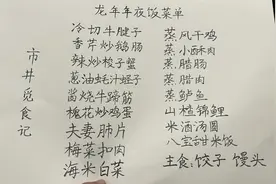 龙年年夜饭菜单
市井觅食记
冷切牛腱子
香芹炒鹅肠
辣炒梭子蟹
葱油蚝汁蛏子
菌烧牛蹄筋
槐花炒鸡蛋
夫妻肺片
梅菜扣肉
海米白菜
蒸风干鸡
蒸小酥肉
蒸腊肠
蒸腊肉
蒸鲈鱼
山楂锦鲤
米酒汤圆
八宝甜米饭
主食:饺子 馒头